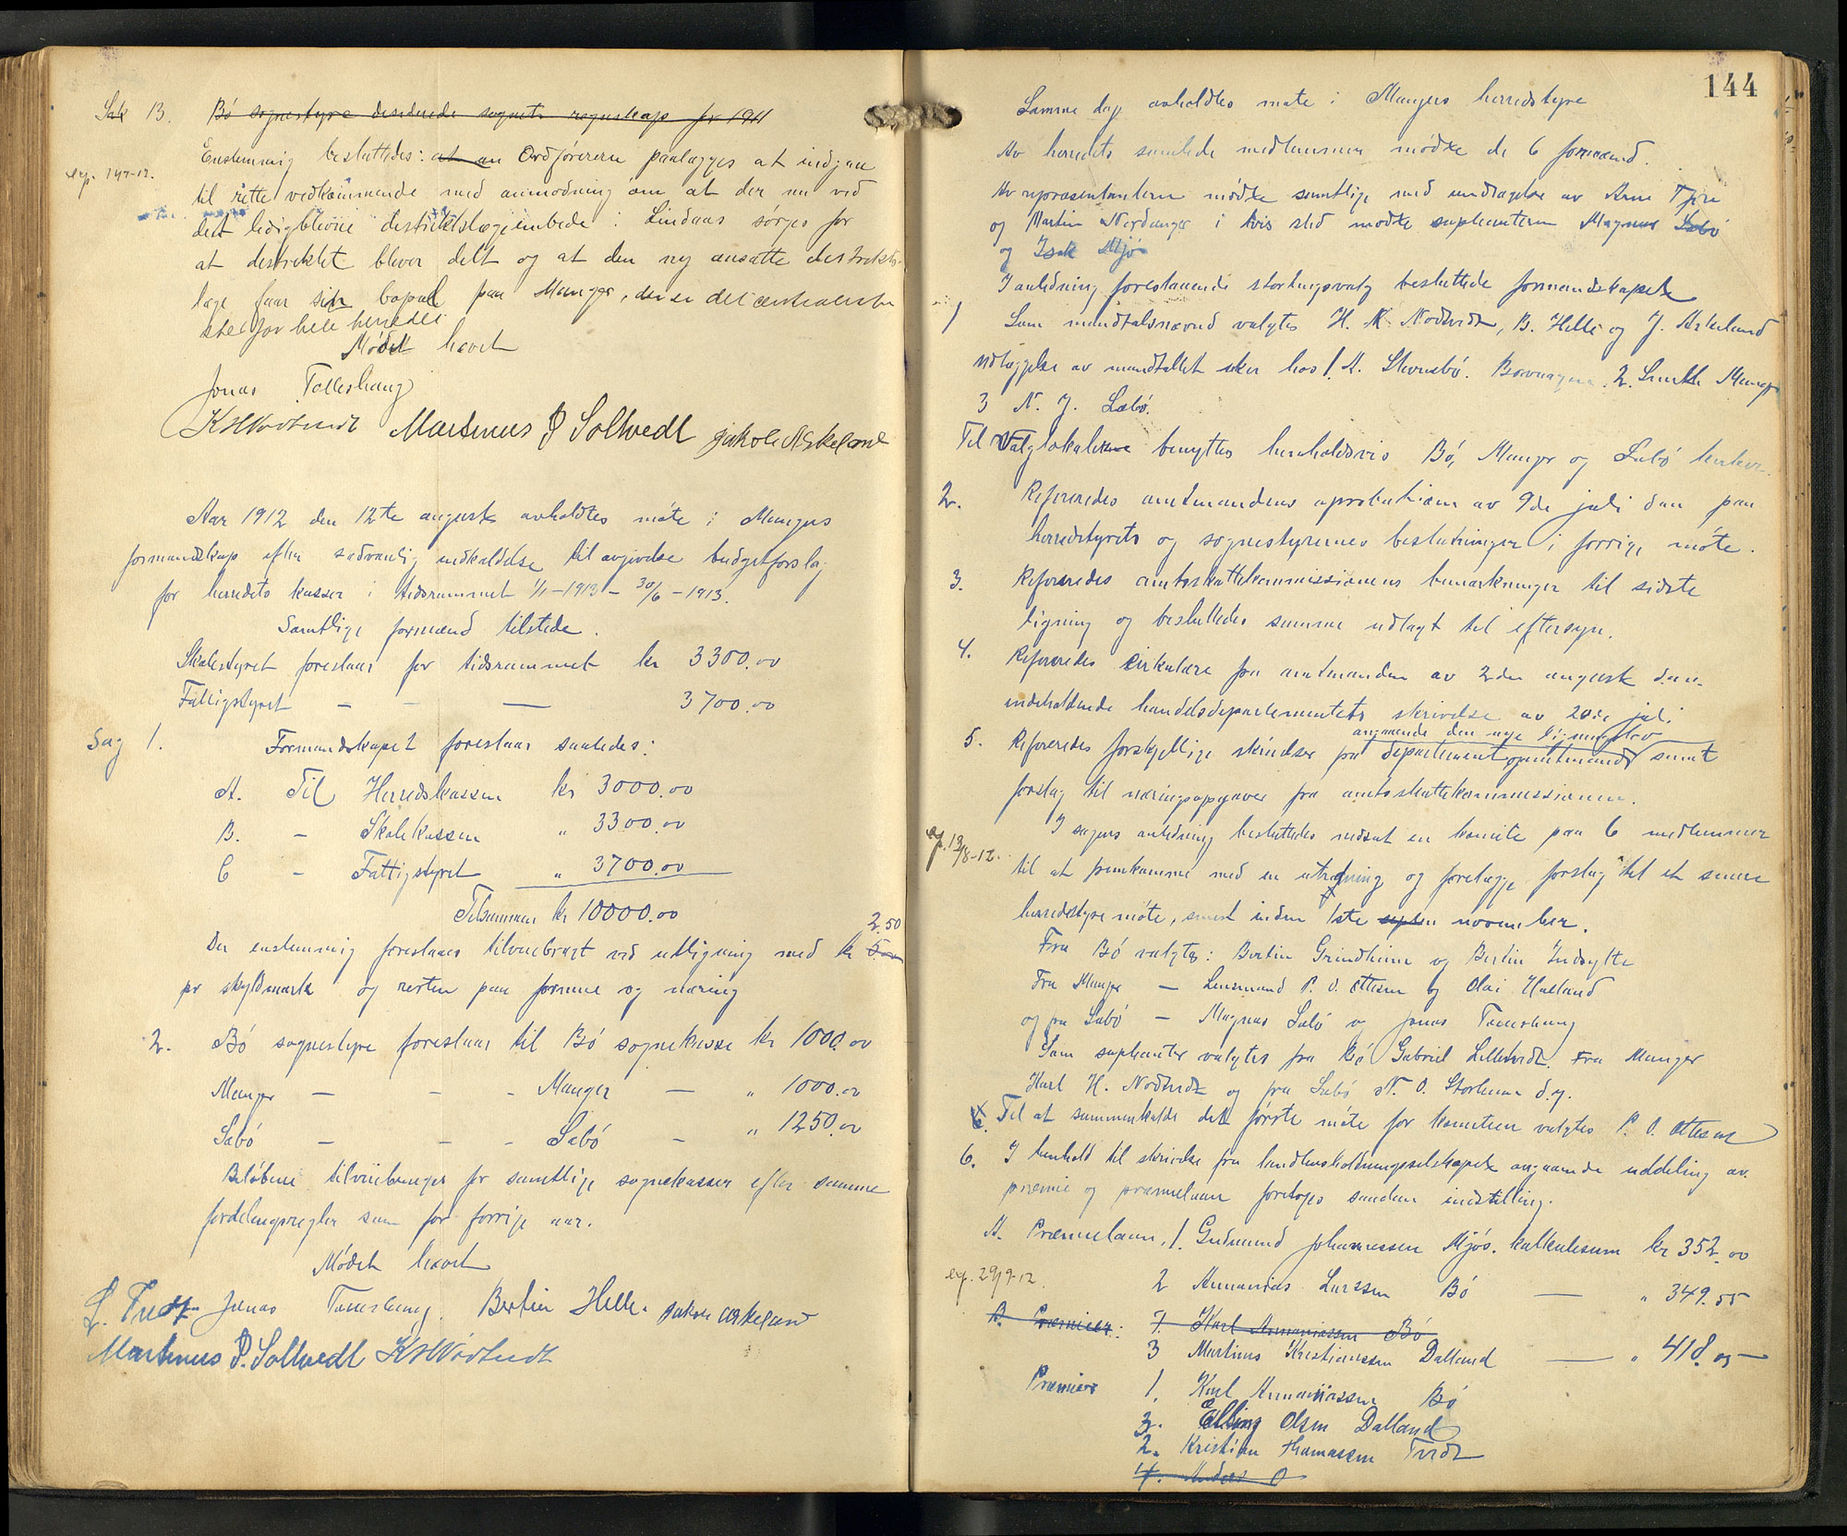 Sak 13. Bö sognestyre desiderede sognets regnskap for 1911
Enstemmig besluttedes: at an Ordføreren paalægges at indgaa
exp. 14/7-12.
til rette vedkommende med anmodning om at der nu ved
det ledigblevne destriktslægeembede i Lindaas sørges for
at destriktet blever delt og at den ny ansatte destrikts-
læge faar sin bopæl paa Manger, der er det centraleste
sted for hele herredet
Mødet hævet
Jonas Tolleshaug
K H Nordtvedt Martinus P Soltvedt Jakob Askeland
Aar 1912 den 12te august avholdtes møte i Mangers
formandskap efter sædvanlig indkaldelse til avgivelse budgetforslag
for herredets kasser i tidsrummet 1/1-1913 - 30/6 - 1913.
Samtlige formænd tilstede.
Skolestyret foreslaar for tidsrummet kr 3300.00
Fattigstyret — - — 3700.00
Sag 1. Formandskapet foreslaar saaledes:
A. Til Herredskassen kr 3000.00
B. - Skolekassen " 3300.00
C - Fattigstyret " 3700.00
Tilsammen kr 10000.00
2.50
Der enstemmig foreslaaes tilveiebragt ved utligning med kr 5.00
pr skyldmark og resten paa formue og næring
2. Bö sognestyre foreslaar til Bö sognekasse kr 1000.00
Manger — - - Manger — " 1000.00
Sæbö — - - Sæbö - " 1250.00
Beløbene tilveiebringes for samtlige sognekasser efter samme
fordelingsregler som for forrige aar.
Mødet hævet
L. Tvedt Jonas Tolleshaug Bertin Helle Jakob Askeland
Martinus P. Soltvedt K H Nordtvedt
144
Samme dag avholdtes møte i Mangers herredstyre
Av herredets samlede medlemmer mødte de 6 formænd.
Av repræsentanterne mødte samtlige med undtagelse av Arne
og Martin Nordanger i hvis sted mødte supleanterne Magnus Sæbö
og Isak Mjös
I anledning forestaaende stortingsvalg besluttede formandskapet
1 Som mandtalsnævnd valgtes H. K. Nodtvedt, B. Helle og J. Askeland
Utlæggelse av mandtallet sker hos 1. A. Skorsebö. Bövaagen 2. Smith Manger
3 N. J. Sæbö.
Til Valglokalerne benyttes henholdsvis Bö, Manger og Sæbö kirker.
2. Refereredes amtmandens aprobation av 9de juli d.a. paa
herredstyrets og sognestyrernes beslutninger i forrige møte.
3. Refereredes amtsskattekommissionens bemerkninger til sidste
ligning og besluttedes samme utlagt til eftersyn.
4. Refereredes cirkulære fra amtmanden av 2den august d.a.
indeholdende handelsdepartementets skrivelse av 20de juli
angaaende den nye ligningslov
5. Refereredes forskjellige skrivelser fra departement og amtmand samt
forslag til næringsopgaver fra amtsskattekommissionen.
I sagens anledning besluttedes nedsat en komite paa 6 medlemmer
exp. 13/8-12.
til at fremkomme med en utredning og forelægge forslag til et senere
herredstyremøte, senest inden 1ste septem november.
Fra Bö valgtes: Bertin Grindheim og Bertin Indsylte
Fra Manger — Lensmand P. O. Ottesen og Olai Halland
og fra Sæbö — Magnus Sæbö og Jonas Tolleshaug
Som suplanter valgtes fra Bö Gabriel Litletvedt. Fra Manger
Karl H. Nodtvedt og fra Sæbö N. O. Storheim d.y.
Til at sammenkalde det første møte for komiteen valgtes P. O. Ottesen
6. I henhold til skrivelse fra landhusholdningsselskapet angaaende uddeling av
præmie og præmielaan foretoges saadan indstilling.
A. Præmielaan, 1. Gudmund Johannessen Mjös. kalkulesum kr 352.00
exp. 29/9-12.
2 Annanias Larssen Bö — " 349.55
B. Præmier: 7. Karl Annaniassen Bö
3 Martinus Kristianssen Dalland — " 418.05 —
Præmier 1. Karl Annaniassen Bö
3. Elling Olsen Dalland
2. Kristian Thomassen Tvedt
4. Anders O